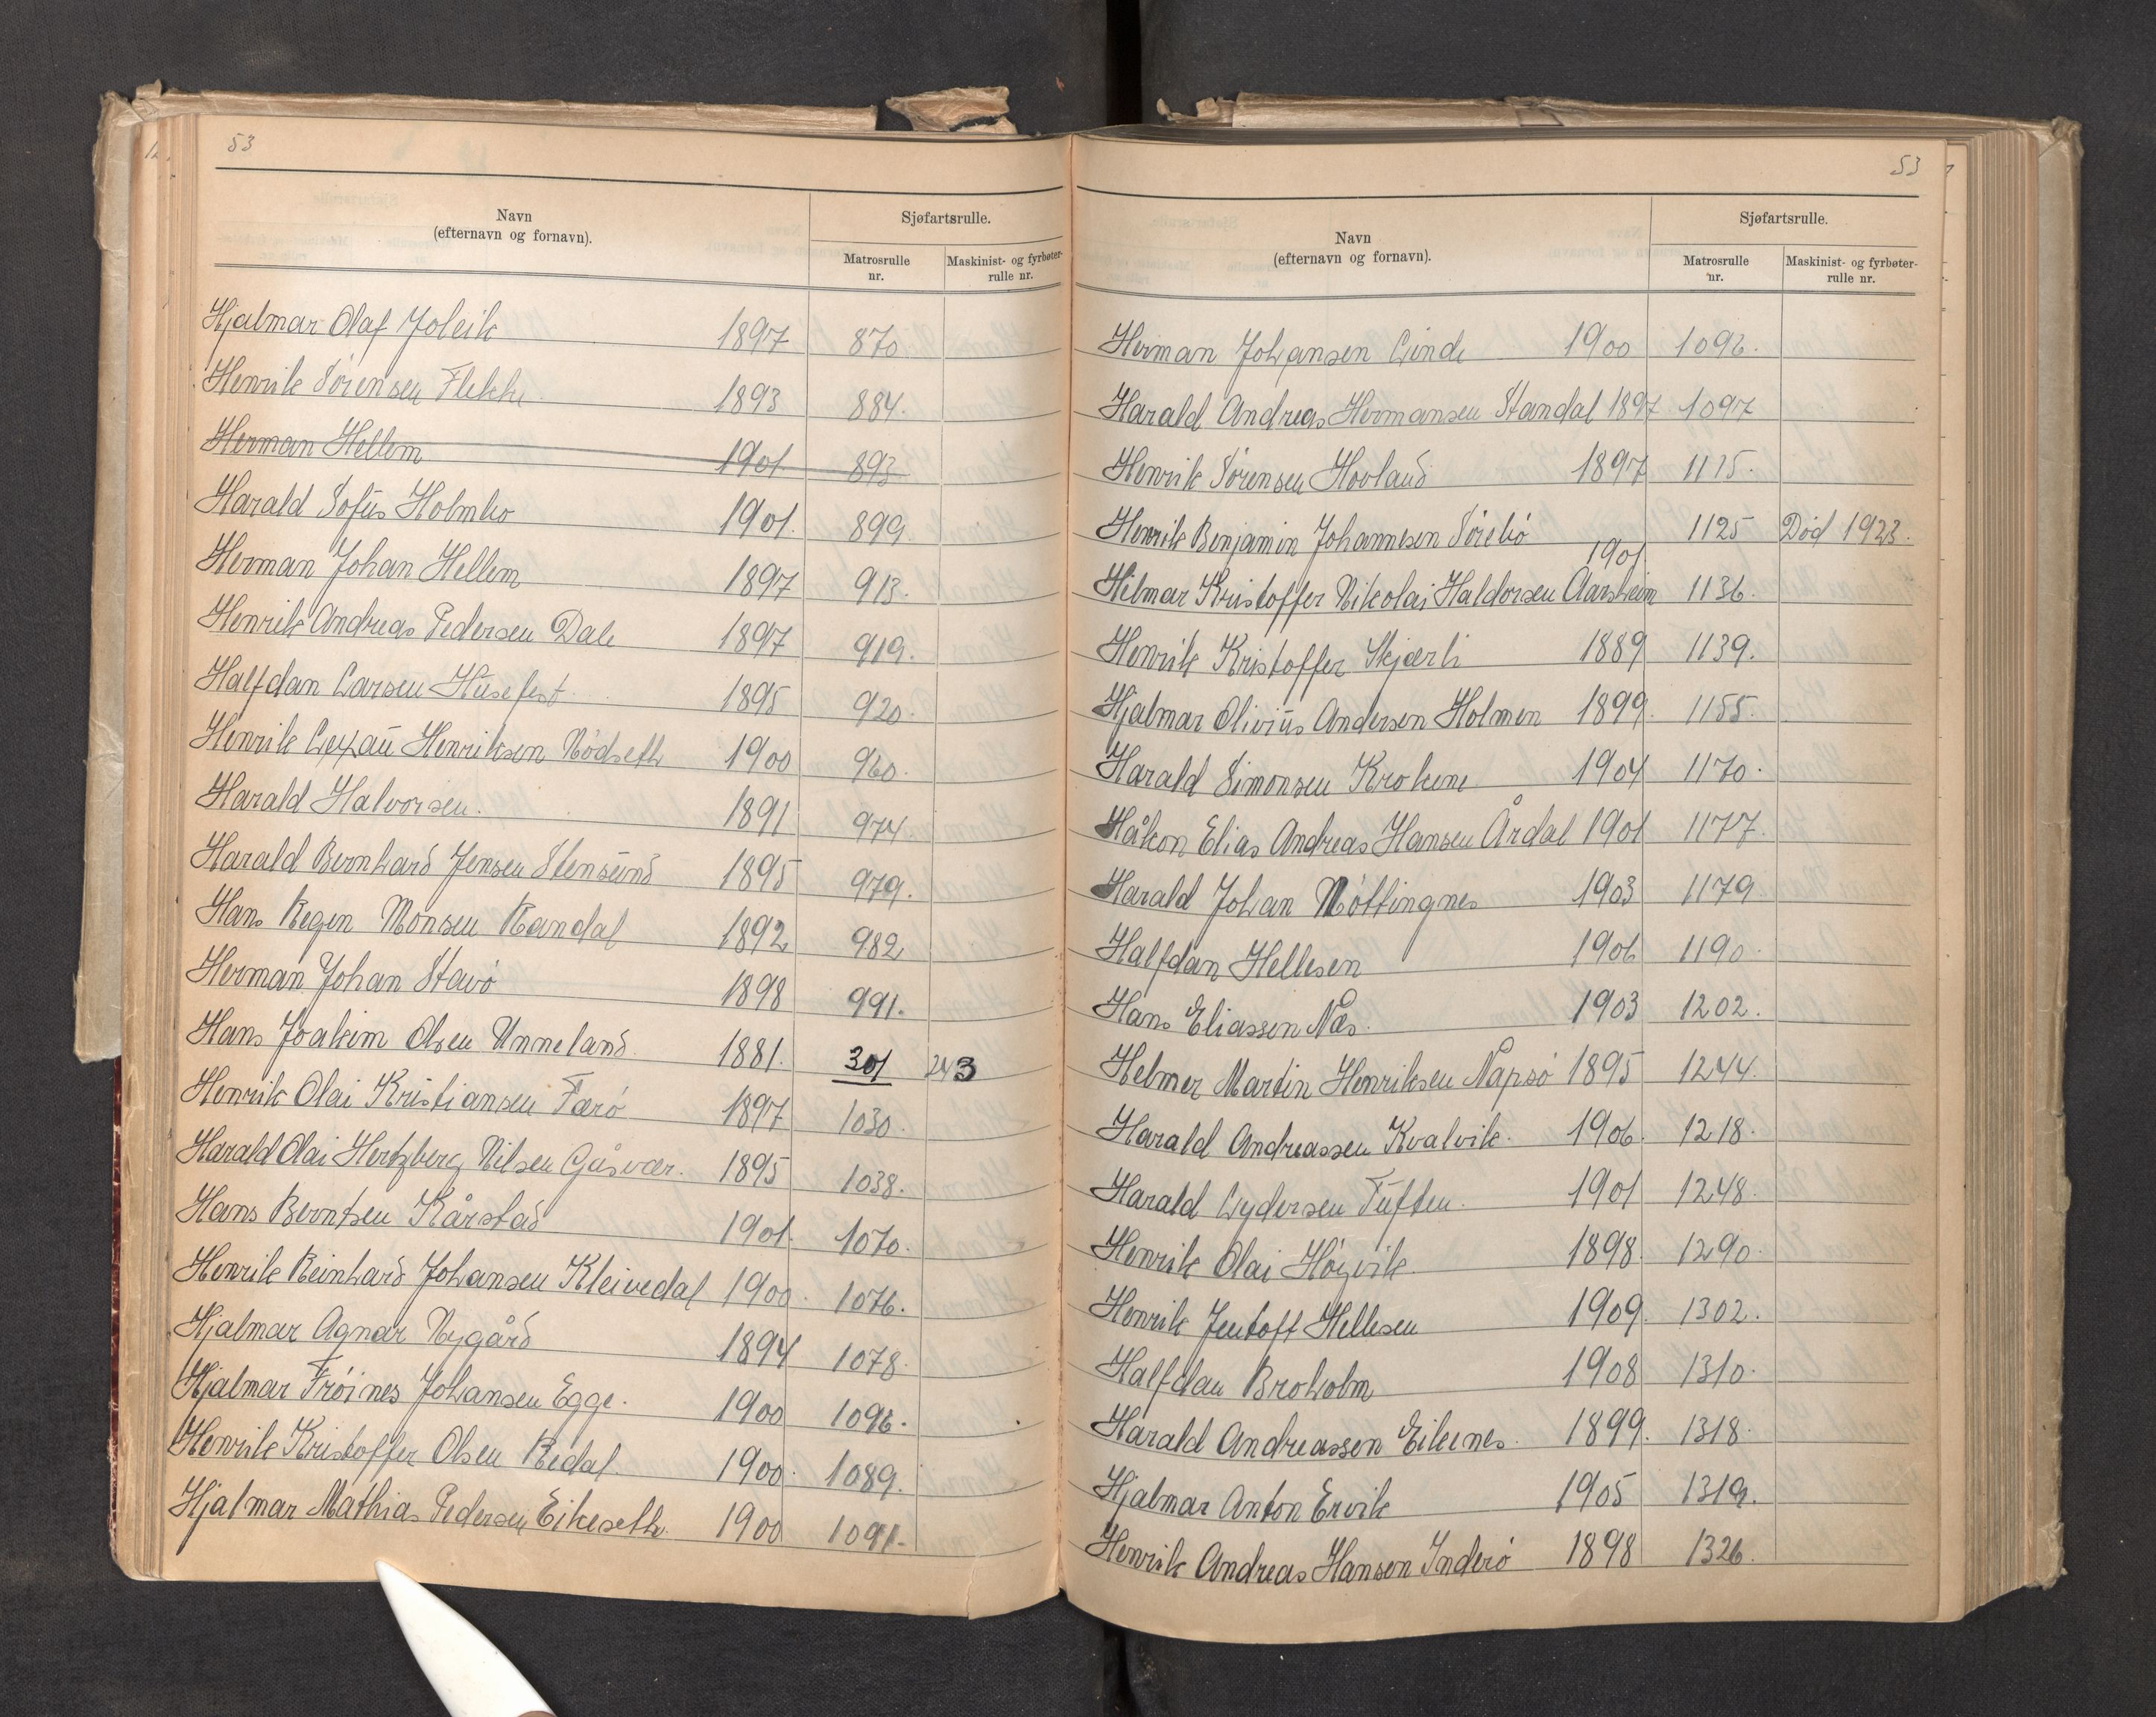 53
Navn
(efternavn og fornavn).
Sjøfartsrulle.
Matrosrulle
nr.
Maskinist- og fyrbøter-
rulle nr.
Hjalmar Olaf Joleik 1897 870
Henrik Sørensen Flekke 1893 884.
Herman Hellem 1901 893
Harald Sofus Holmbo 1901. 899
Herman Johan Hellem 1897 913.
Henrik Andreas Pedersen Dale 1897 919.
Halfdan Larsen Husefest 1895 920.
Henrik Lexau Henriksen Nødseth 1900 960.
Harald Halvorsen. 1891 974.
Harald Bernhard Jensen Stensund 1895 979.
Hans Regen Monsen Randal 1892 982
Herman Johan Stavø 1898 991.
Hans Joakim Olsen Unneland 1881. 301 243
Henrik Olai Kristiansen Færø 1897 1030.
Harald Olai Hertzberg Nilsen Gåsvær. 1895 1038.
Hans Berntsen Kårstad 1901. 1070.
Henrik Reinhard Johansen Kleivedal 1900. 1076.
Hjalmar Agnar Nygård 1894 1078.
Hjalmar Frøines Johansen Egge. 1900 1096.
Henrik Kristoffer Olsen Redal. 1900. 1089.
Hjalmar Mathias Pedersen Eikeseth. 1900 1091.
53
Navn
(efternavn og fornavn).
Sjøfartsrulle.
Matrosrulle
nr.
Maskinist- og fyrbøter-
rulle nr.
Herman Johansen Linde 1900 1096.
Harald Andreas Hermansen Standal 1897 1097
Henrik Sørensen Hovland 1897 1115.
Henrik Benjamin Johannesen Sørebø 1125 Død 1923.
1901
Hilmar Kristoffer Nikolai Haldorsen Aarsheim 1136.
Henrik Kristoffer Skjærli 1889 1139.
Hjalmar Olivius Andersen Holmen 1899. 1155.
Harald Simonsen Krokene 1904 1170.
Håkon Elias Andreas Hansen Årdal 1901 1177.
Harald Johan Nøttingnes 1903 1179.
Halfdan Hellesen 1906 1190.
Hans Eliassen Næs. 1903 1202.
Helmer Martin Henriksen Napsø 1895 1244.
Harald Andreassen Kvalvik. 1906. 1218.
Harald Lydersen Tuften. 1901 1248.
Henrik Olai Høyvik. 1898. 1290.
Henrik Jentoft Hellesen 1909. 1302.
Halfdan Broholm 1908 1310.
Harald Andreassen Eikenes. 1899. 1318.
Hjalmar Anton Ervik 1905 1319.
Henrik Andreas Hansen Inderø 1898 1326.